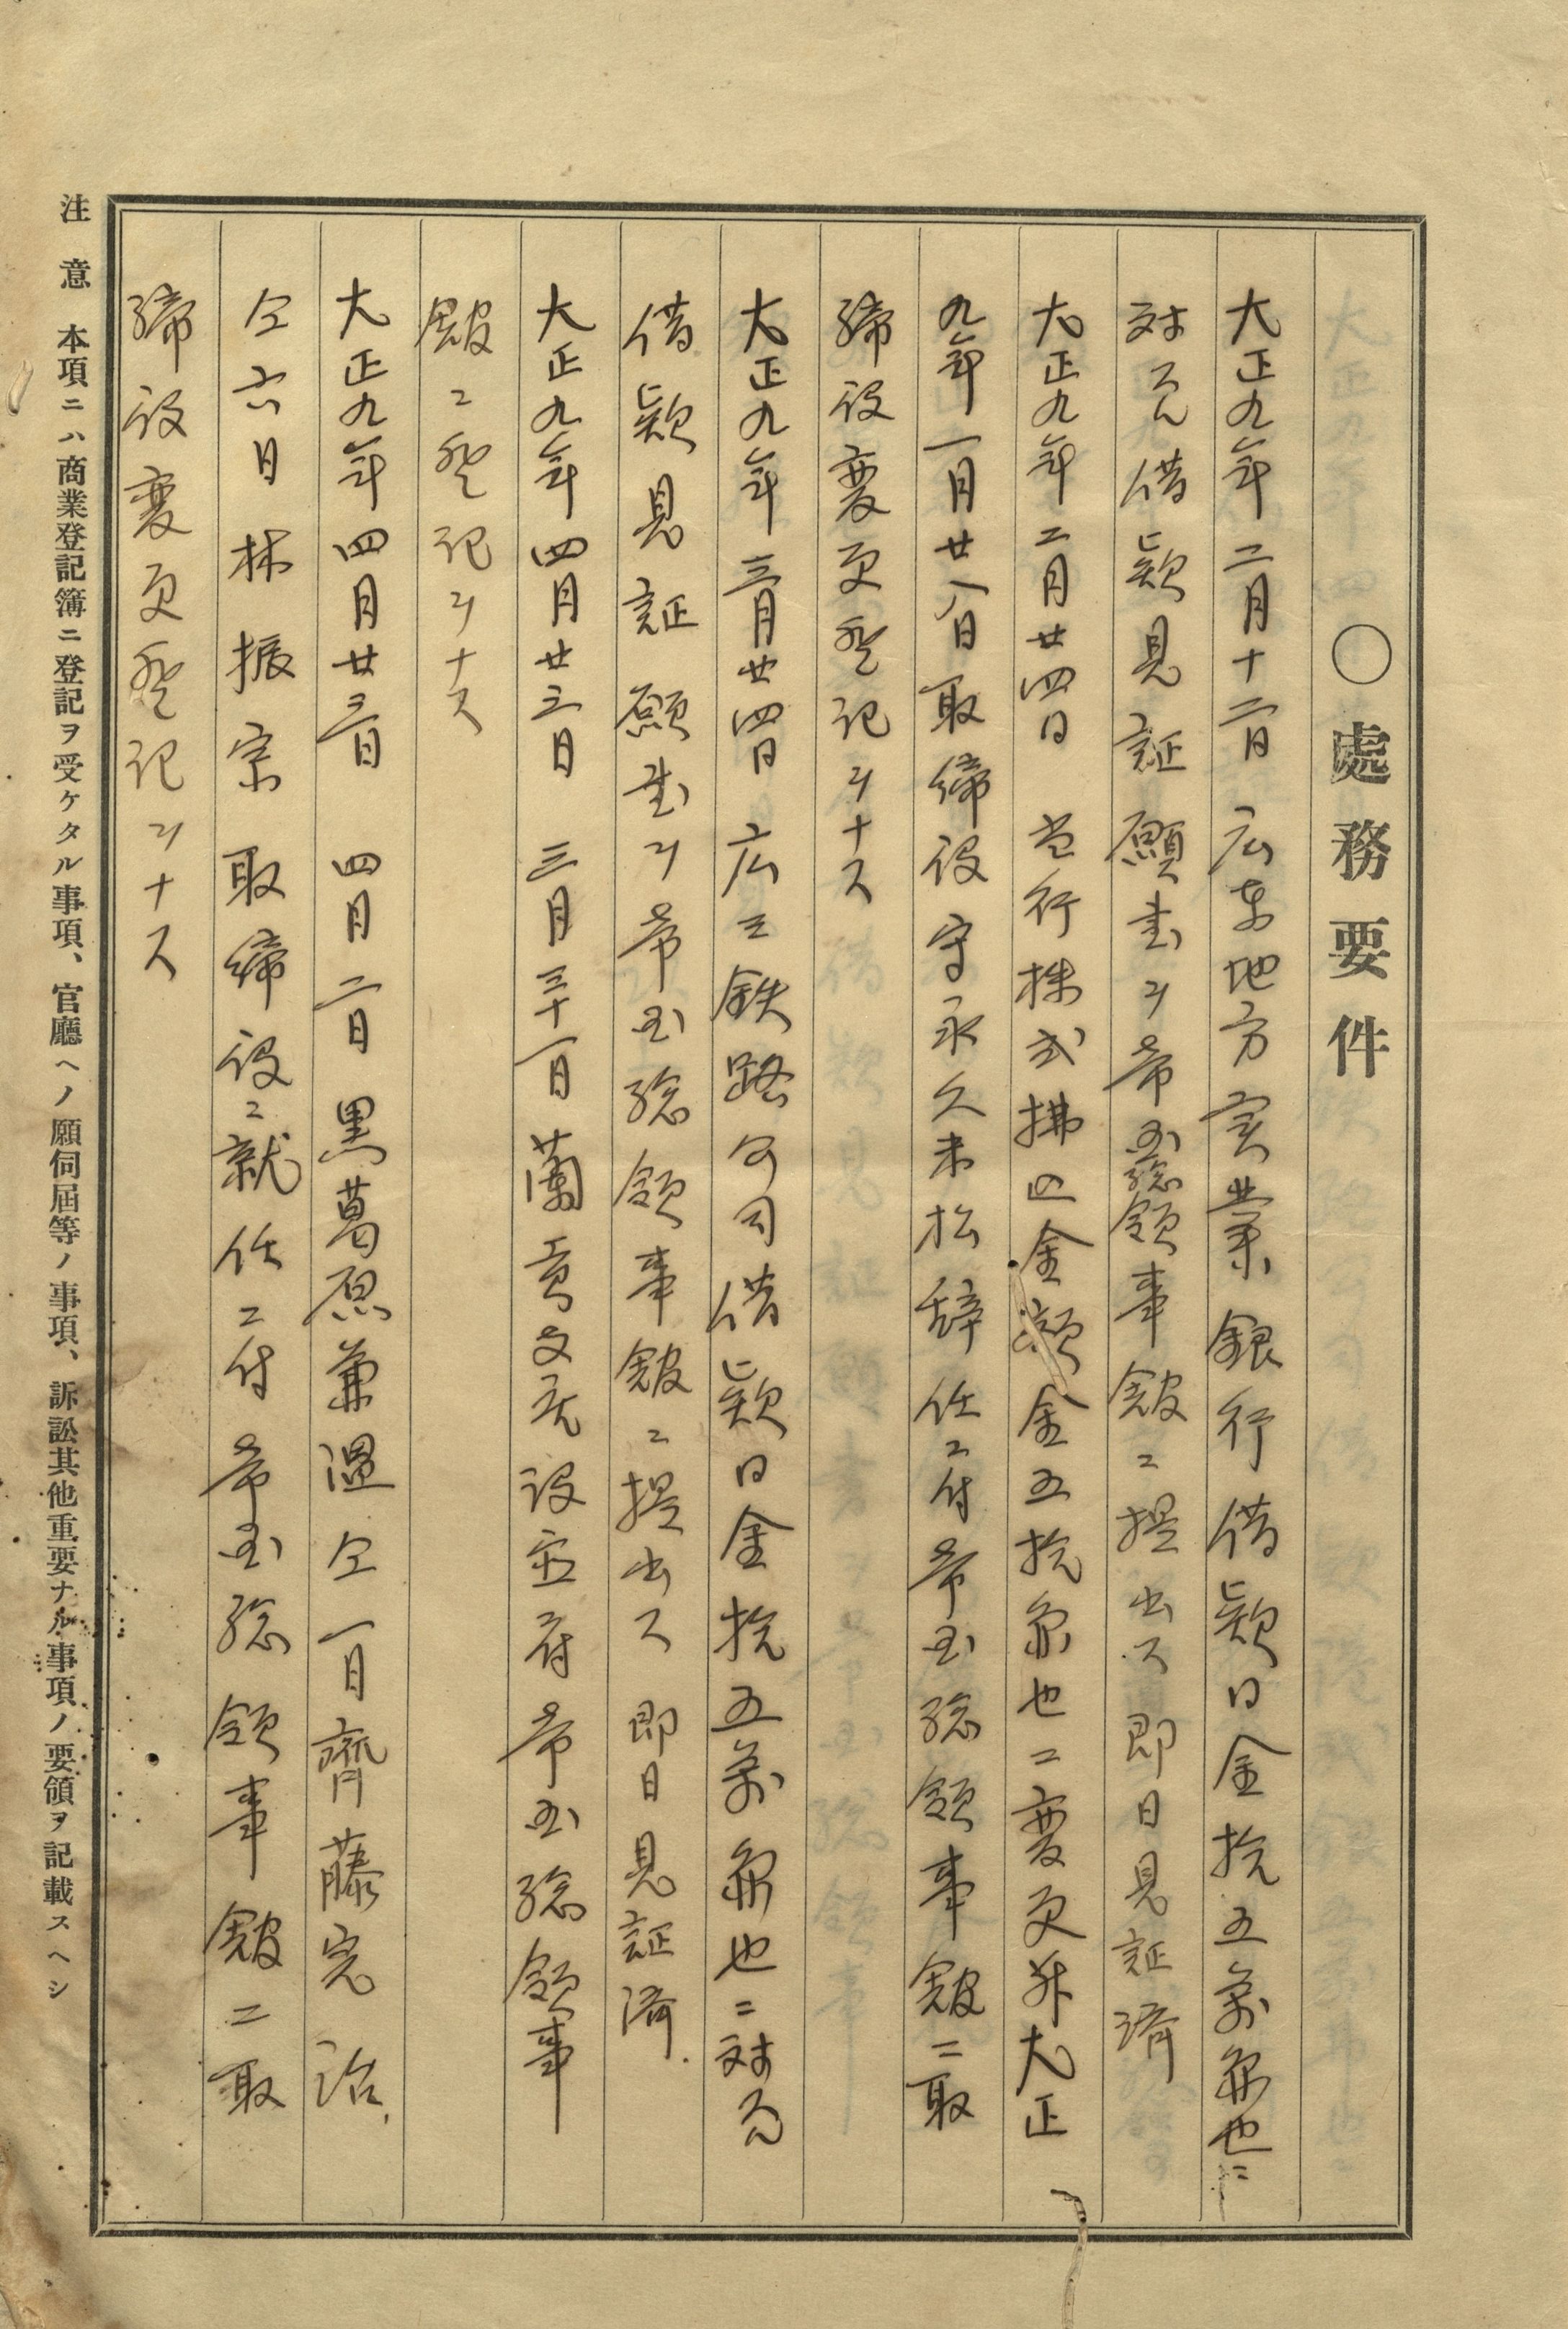 〇處務要件
大正九年二月十二日 広东地方実業銀行借款日金拾五萬弗也ニ
対スル借款見証願書ヲ帝国総領事館ニ提出ス即日見証済
大正九年二月廿四日 当行株式拂込金額金五拾弗也ニ変更并大正
九年一月廿八日取締役守永久米松辞任ニ付帝国総領事館ニ取
締役変更登記ヲナス
大正九年三月廿四日 広三鉄路公司借款日金拾五萬弗也ニ対スル
借款見証願書ヲ帝国総領事館ニ提出ス 即日見証済.
大正九年四月廿三日 三月三十一日蘭貢支店設立ニ付帝国総領事
館ニ登記ヲナス
大正九年四月廿三日 四月二日黒葛原兼温仝一日齊藤完治、
仝六日林振宗取締役ニ就任ニ付帝国総領事館ニ取
締役変更登記ヲナス
注意 本項ニハ商業登記簿ニ登記ヲ受ケタル事項、官廳ヘノ願伺屆等ノ事項、訴訟其他重要ナル事項ノ要領ヲ記載スヘシ